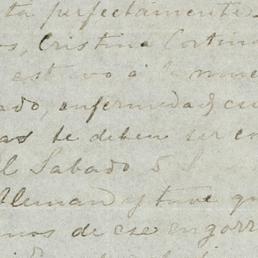 ta perfectamente
os, Cristina Cortina
estuvo á la
ado, enfermedad, cu
as te deben ser co
l Sabado 5
Aleman y tuve qu
nos de ese engorr